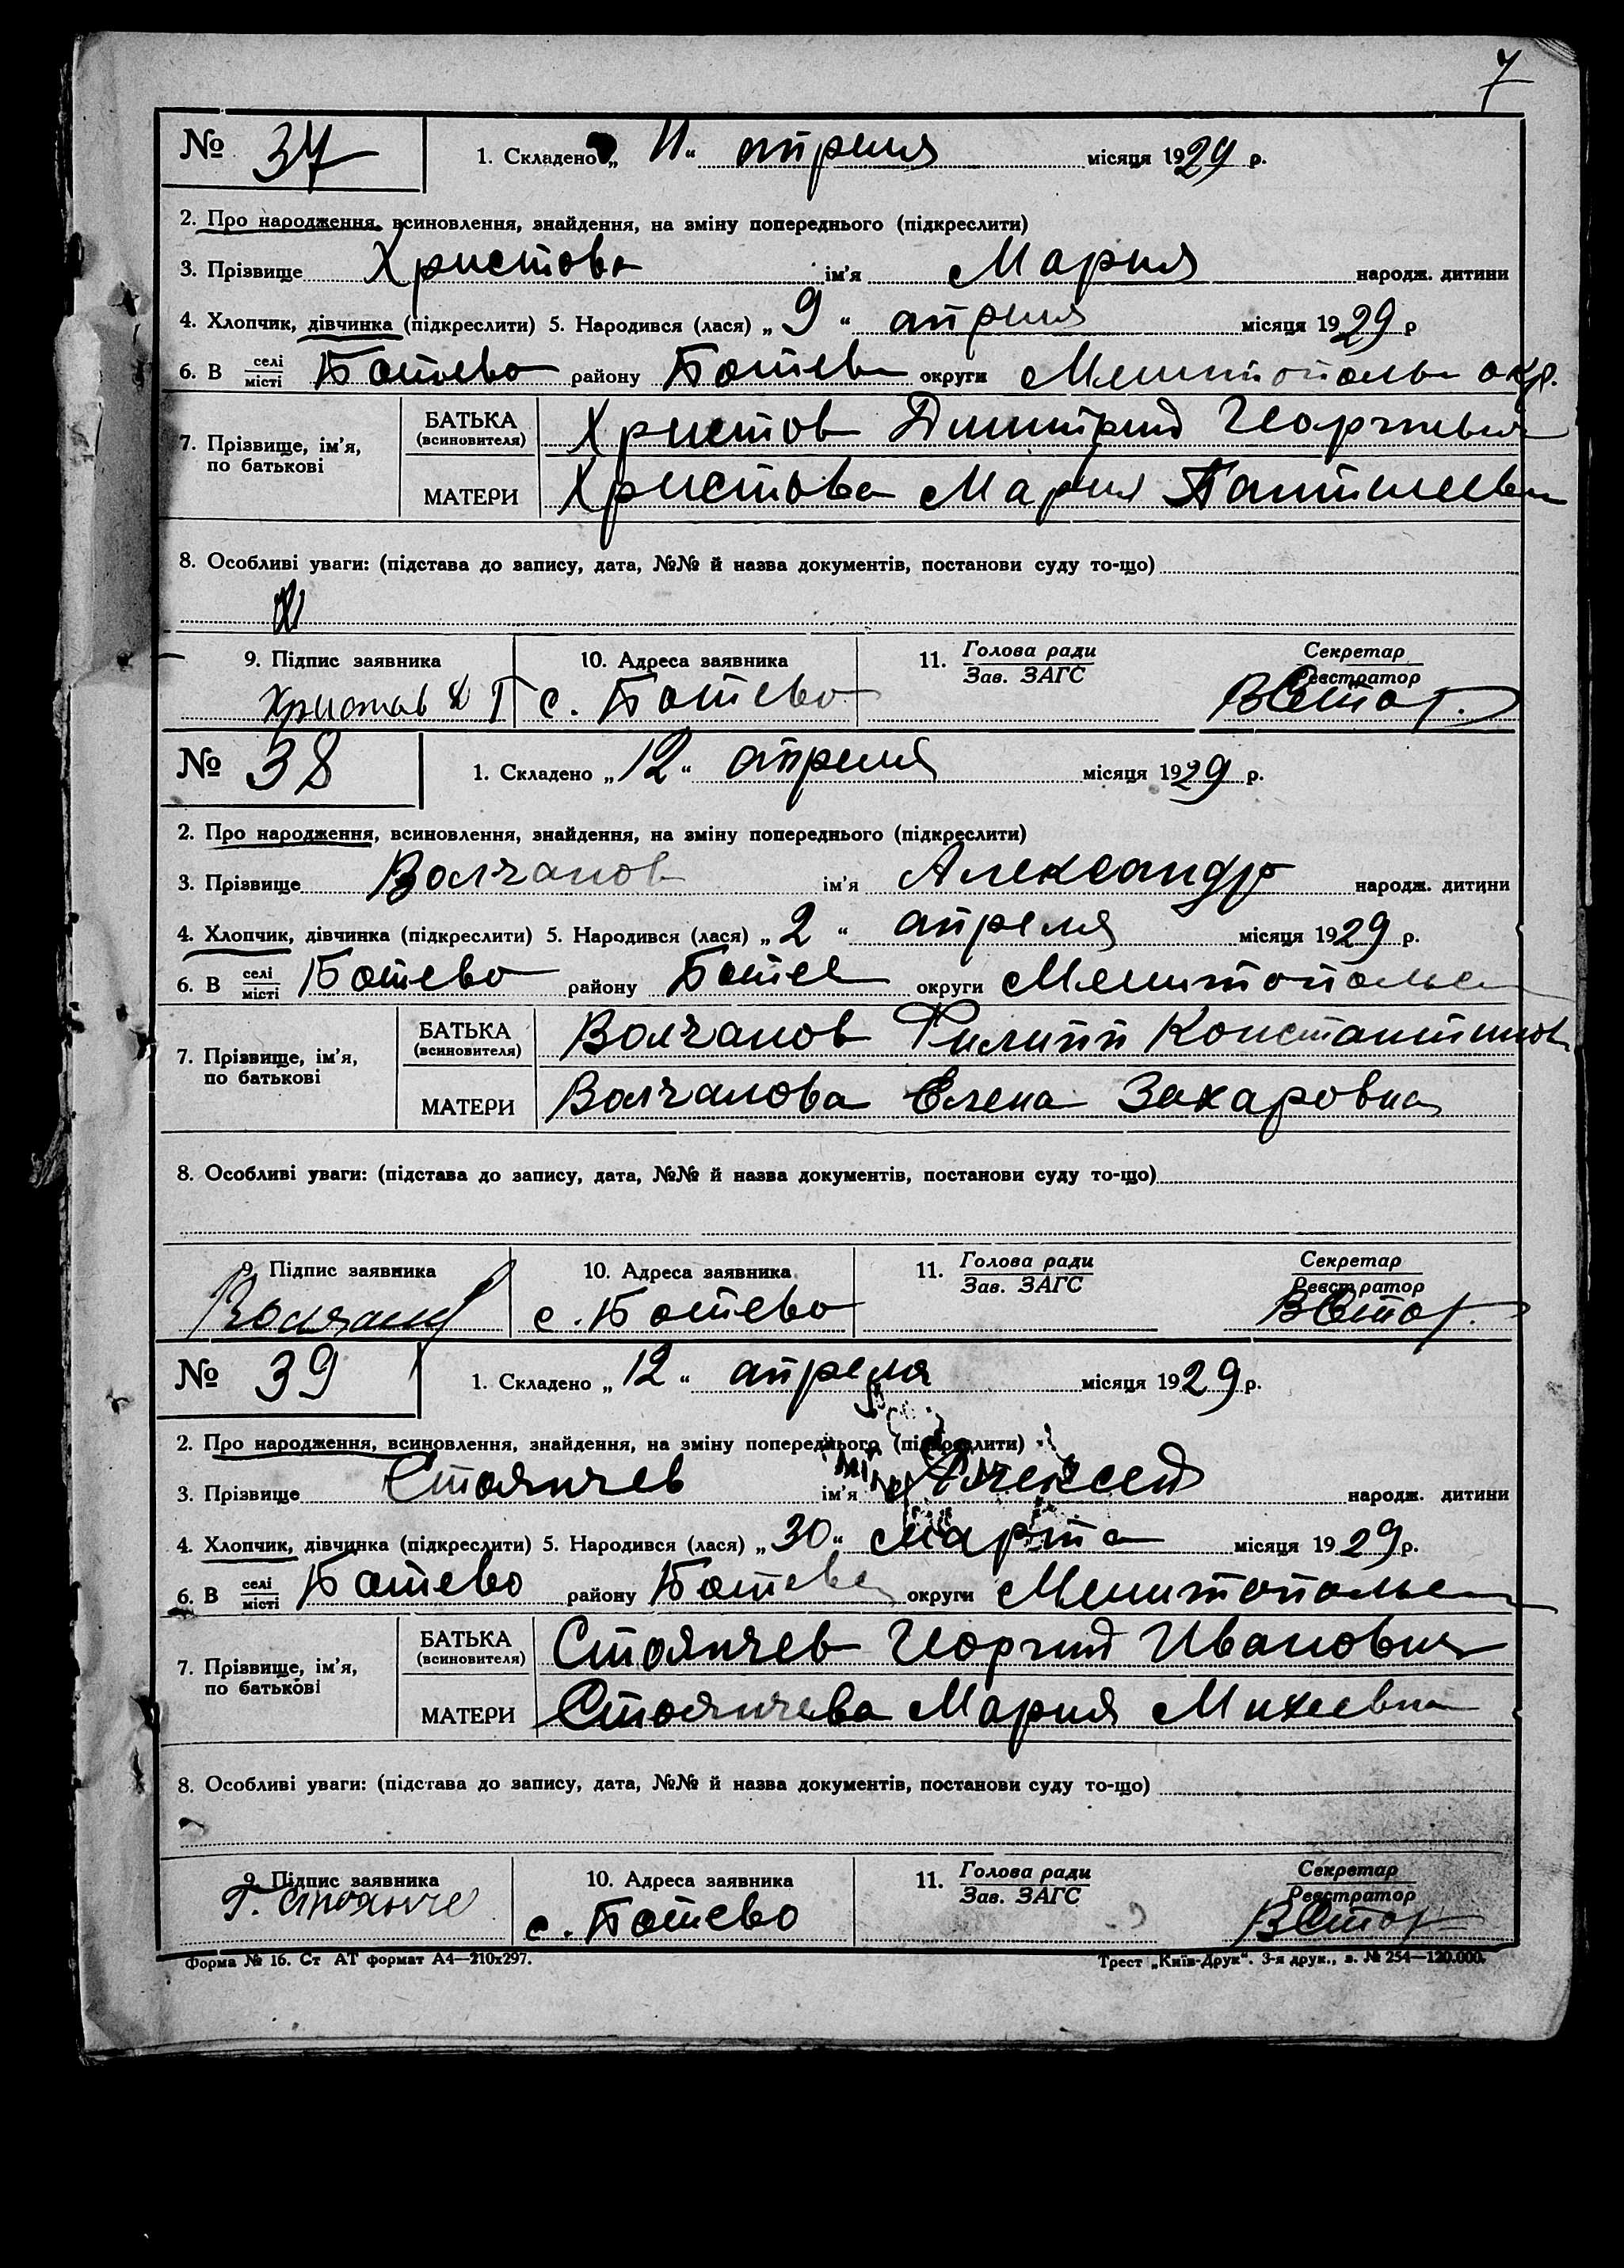 7
№ 37 1. Складено „ 11 “ апреля місяця 1929 р.
2. Про народження, всиновлення, знайдення, на зміну попереднього (підкреслити)
3. Прізвище Христова ім'я Мария народж. дитини
4. Хлопчик, дівчинка (підкреслити) 5. Народився (лася) „ 9 “ апреля місяця 1929 р
6. В селі/місті Ботево району Ботев округи Мелитопольск окр.
БАТЬКА (всиновителя) Христов Дмитрий Георгиевич
7. Прізвище, ім'я, по батькові
МАТЕРИ Христова Мария
8. Особливі уваги: (підстава до запису, дата, №№ й назва документів, постанови суду то-що)
9. Підпис заявника 10. Адреса заявника 11. Голова ради/Зав. ЗАГС Секретар/Реєстратор
Христов Д Г с. Ботево
№ 38 1. Складено „ 12 “ апреля місяця 1929 р.
2. Про народження, всиновлення, знайдення, на зміну попереднього (підкреслити)
3. Прізвище Волчанов ім'я Александр народж. дитини
4. Хлопчик, дівчинка (підкреслити) 5. Народився (лася) „ 2 “ апреля місяця 1929 р.
6. В селі/місті Ботево району Ботев округи Мелитопольск
БАТЬКА (всиновителя) Волчанов Филипп Константинов
7. Прізвище, ім'я, по батькові
МАТЕРИ Волчанова Елена Захаровна
8. Особливі уваги: (підстава до запису, дата, №№ й назва документів, постанови суду то-що)
9. Підпис заявника 10. Адреса заявника 11. Голова ради/Зав. ЗАГС Секретар/Реєстратор
Волчанов с. Ботево
№ 39 1. Складено „ 12 “ апреля місяця 1929 р.
2. Про народження, всиновлення, знайдення, на зміну попереднього (підкреслити)
3. Прізвище Стоянчев ім'я Алексей народж. дитини
4. Хлопчик, дівчинка (підкреслити) 5. Народився (лася) „ 30 “ марта місяця 1929 р.
6. В селі/місті Ботево району Ботевск округи Мелитопольск
БАТЬКА (всиновителя) Стоянчев Георгий Иванович
7. Прізвище, ім'я, по батькові
МАТЕРИ Стоянчева Мария Михеевна
8. Особливі уваги: (підстава до запису, дата, №№ й назва документів, постанови суду то-що)
9. Підпис заявника 10. Адреса заявника 11. Голова ради/Зав. ЗАГС Секретар/Реєстратор
Г. Стоянче с. Ботево
Форма № 16. Ст АТ формат А4—210х297. Трест „Київ-Друк“. 3-я друк., з. № 254—120.000.